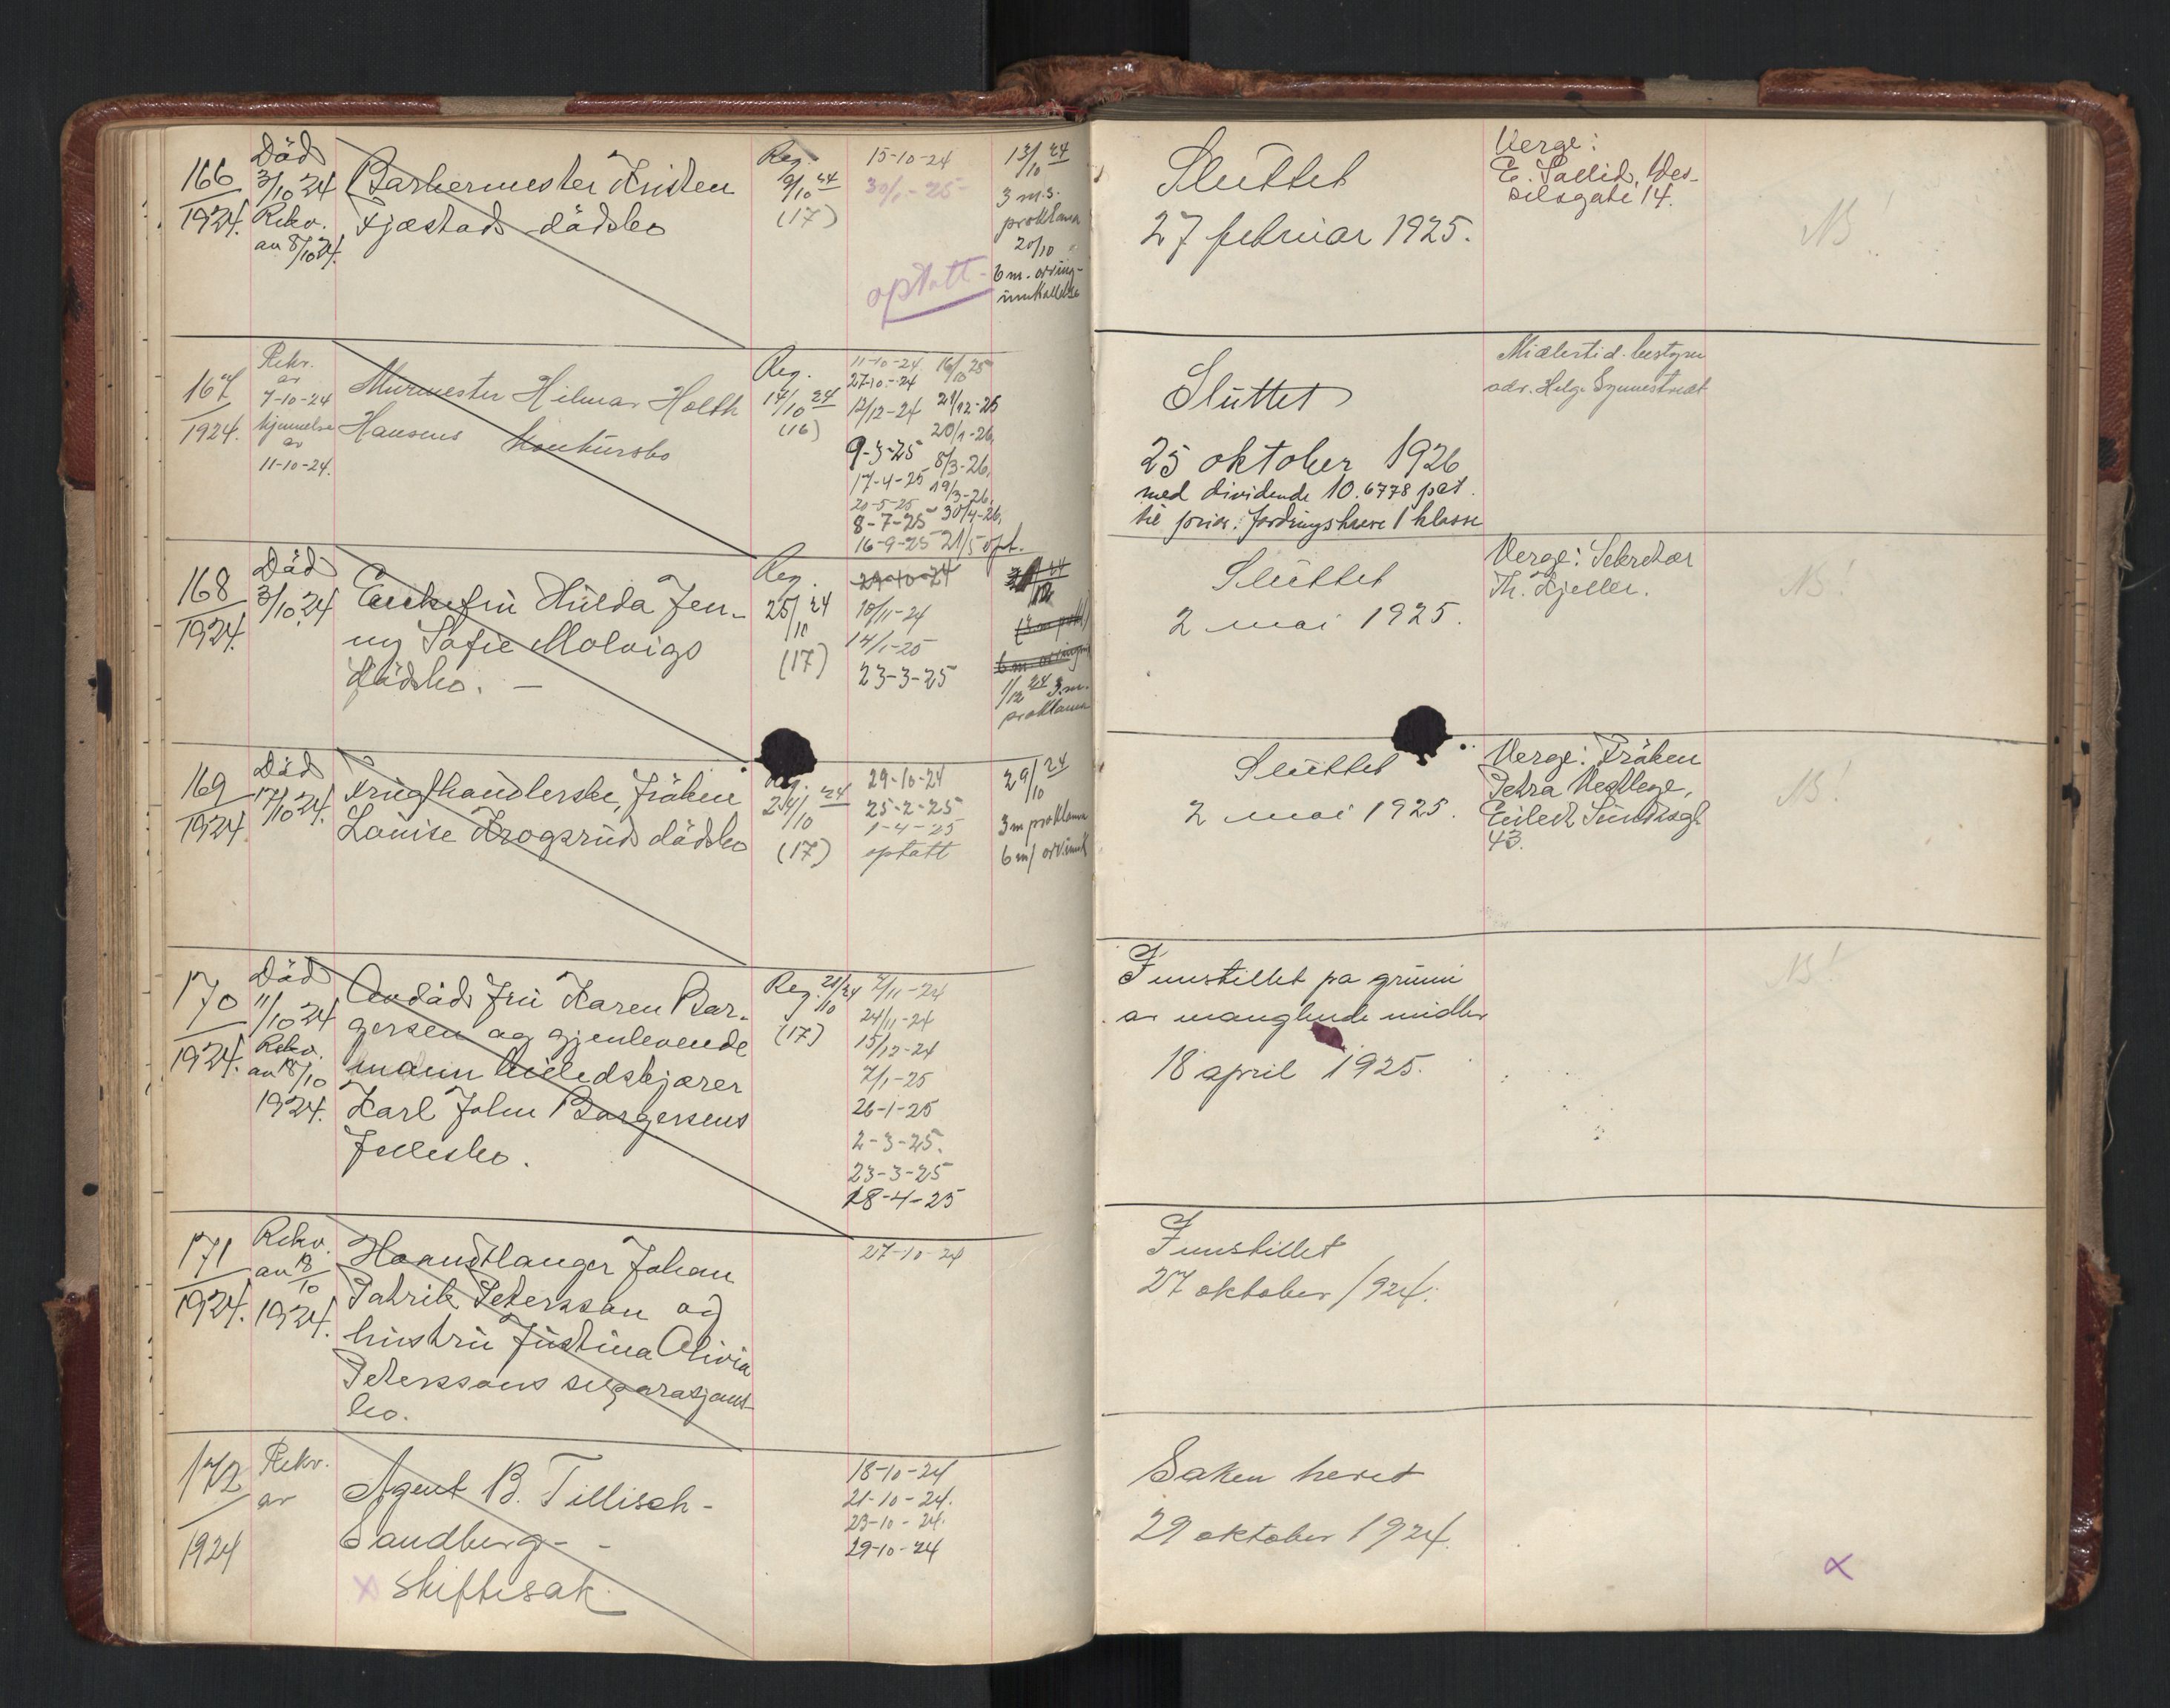 166
1924.
Död
3/10 24
Rekv.
av 8/10 24.
Barbermester Kristen
Fjæstads dödsbo
Reg.
9/10 24
(17)
15-10-24
30/1-25
optatt
13/10 24
3 m.s.
proklama
20/10 "
6 m. arving-
innkallelse
Sluttet
27 februar 1925.
Verge:
E. Sallid, Wes-
selsgate 14.
NB!
167
1924.
Rekv.
av
7-10-24
kjennelse
av
11-10-24.
Murmester Hilmar Holth
Hansens konkursbo
Reg.
14/10 24
(16)
11-10-24
27-10-24
12/12-24
9-3-25
17-4-25
20-5-25
8-7-25
16-9-25
16/10 25
21/12-25
20/1-26,
8/3-26,
19/3-26,
30/4-26,
21/5 opt.
Sluttet
25 oktober 1926
med dividende 10.6778 pct.
til prior. fordringshavere 1 klasse
Midlertid. bestyrer
adv. Helge
168
1924.
Död
3/10 24
Enkefru Hulda Jen-
ny Sofie Molvigs
dödsbo. —
Reg.
25/10 24
(17)
29-10-24
10/11-24
14/1-25
23-3-25
1/12 24 3 m.
proklama
Sluttet
2 mai 1925.
Verge: Sekretær
Th. Kjeller.
NB!
169
1924.
Död
17/10 24.
Frugthandlerske, fröken
Louise Krogsruds dödsbo
Reg.
24/10 24
(17)
29-10-24
25-2-25
1-4-25
optatt
29/10 24
3 m proklama
6 m/ arv.innk
Sluttet
2 mai 1925.
Verge: Fröken
Petra Vestlege,
Eilert Sundtsgt
43.
NB!
170
1924.
Död
11/10 24
Rekv.
av 18/10
1924.
Avdöde fru Karen Bør-
gersen og gjenlevende
mann billedskjærer
Karl John Børgersens
fellesbo.
Reg. 21/10 24
(17)
7/11-24
24/11-24
15/12-24
7/1-25
26-1-25
2-3-25.
23-3-25
18-4-25
Innstillet pa grunn
av manglende midler
18 april 1925.
NB!
171
1924.
Rekv.
av 18/10
1924.
Haandlanger Johan
Patrik Petersson og
hustru Justina Olivia
Peterssons separasjons-
bo.
27-10-24
Innstillet
27 oktober 1924.
172
1924
Rekv.
av
Agent B. Tillisch-
Sandberg- -
x skiftesak.
18-10-24
21-10-24.
23-10-24.
29-10-24
Saken hevet
29 oktober 1924.
x